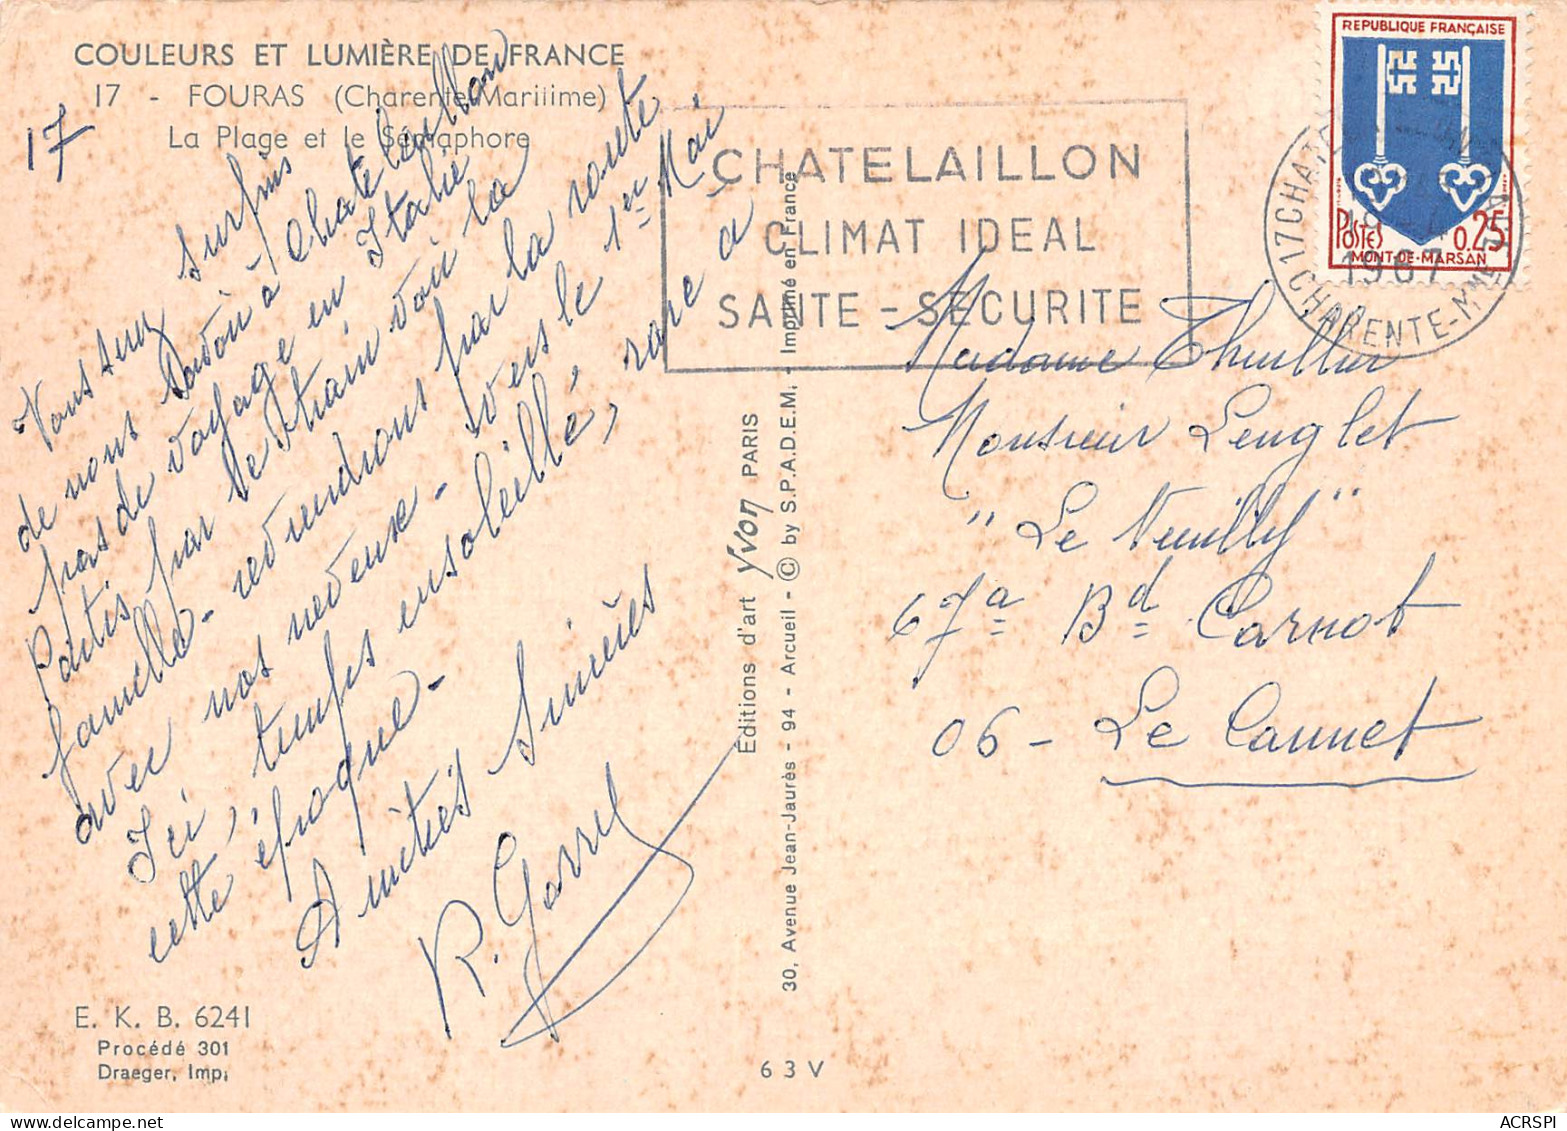 COULEURS ET LUMIÈRE DE FRANCE
17 - FOURAS (Charente-Mariiime)
La Plage et le Sémaphore
17
Vous serez surpris
de nous savoir à Chatelaillon
pas de voyage en Italie
Partis par le train voir la
famille - reviendrons par la route
avec nos neveux - vers le 1er Mai
Ici, temps ensoleillé, rare à
cette époque -
Amitiés Sincères
R. Garrel
E. K. B. 6241
Procédé 301
Draeger, Imp.
Editions d'art Yvon PARIS
30, Avenue Jean-Jaurès - 94 - Arcueil - © by S.P.A.D.E.M. - Imprimé en France
6 3 V
CHATELAILLON
CLIMAT IDEAL
SANTE - SECURITE
17 CHATELAILLON-PLAGE
1967
CHARENTE-MME
REPUBLIQUE FRANÇAISE
POSTES 0,25
MONT-DE-MARSAN
Madame Thuillier
Monsieur Lenglet
"Le Neuilly"
67a Bd Carnot
06 - Le Cannet
ACRSPI